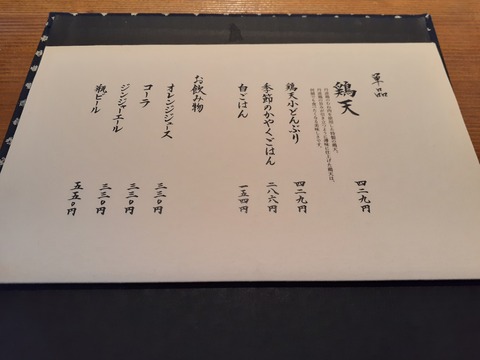 単品
鶏天
四二九円
鶏天小どんぶり
四二九円
季節のかやくごはん
二八六円
白ごはん
一五四円
お飲み物
オレンジジュース
三三〇円
コーラ
三三〇円
ジンジャーエール
三三〇円
瓶ビール
五五〇円